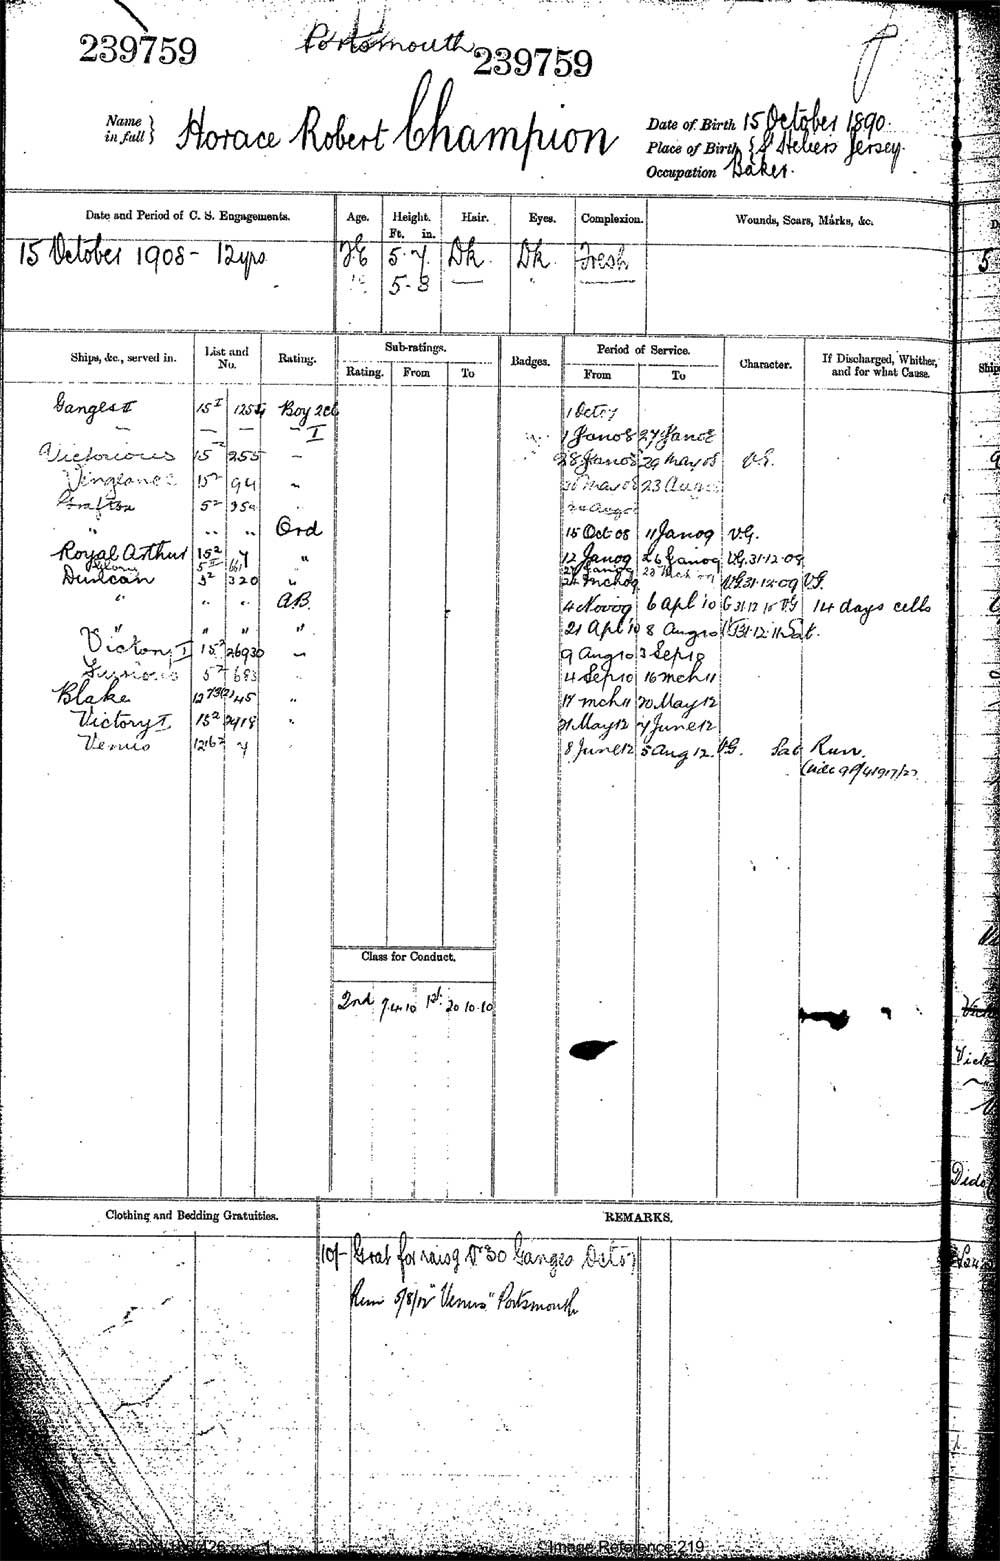 Portsmouth
239759 239759
Name in full } Horace Robert Champion
Date of Birth 15 October 1890.
Place of Birth { St Heliers Jersey.
Occupation Baker.
Date and Period of C. S. Engagements. Age. Height. Ft. in. Hair. Eyes. Complexion. Wounds, Scars, Marks, &c.
15 October 1908 - 12 yrs 5.4 Dk. Dk. Fresh
5-8 — " —
Ships, &c., served in. List and No. Rating. Sub-ratings. Rating. From To Badges. Period of Service. From To Character. If Discharged, Whither, and for what Cause.
Ganges II 15 I 1254 Boy 2cl 1 Oct 07
— — — " I 1 Jan 08 27 Jan 08
Victorious 15 255 — 28 Jan 08 29 May 08 V.G.
Vengeance 15² 94 " 30 May 08 23 Aug 08
Grafton 5² 350 24 Aug 08
" " " Ord 15 Oct 08 11 Jan 09 V.G.
Royal Arthur 15² 4 " 12 Jan 09 26 Jan 09 V.G. 31.12.09
Duncan 5² 320 " 24 Mch 09 V.G. 31.12.09 V.G.
" " " A.B. 4 Nov 09 6 Apl 10 G 31 12 10 V.G 14 days cells
" " " " 21 Apl 10 8 Aug 10 31.12.11 Sat.
Victory I 15² 26930 " 9 Aug 10 3 Sep 10
Furious 5² 683 4 Sep 10 16 Mch 11
Blake 45 " 17 Mch 11 20 May 12
Victory I 15² 2418 " 21 May 12 7 June 12
Venus 4 8 June 12 5 Aug 12. V.G. Sat Run.
Class for Conduct.
2nd 7.4.10 1st 20.10.10
Clothing and Bedding Gratuities. REMARKS.
10/- Grat for Ganges Oct 07
Run 5/8/12 "Venus" Portsmouth
Dido
Image Reference:219